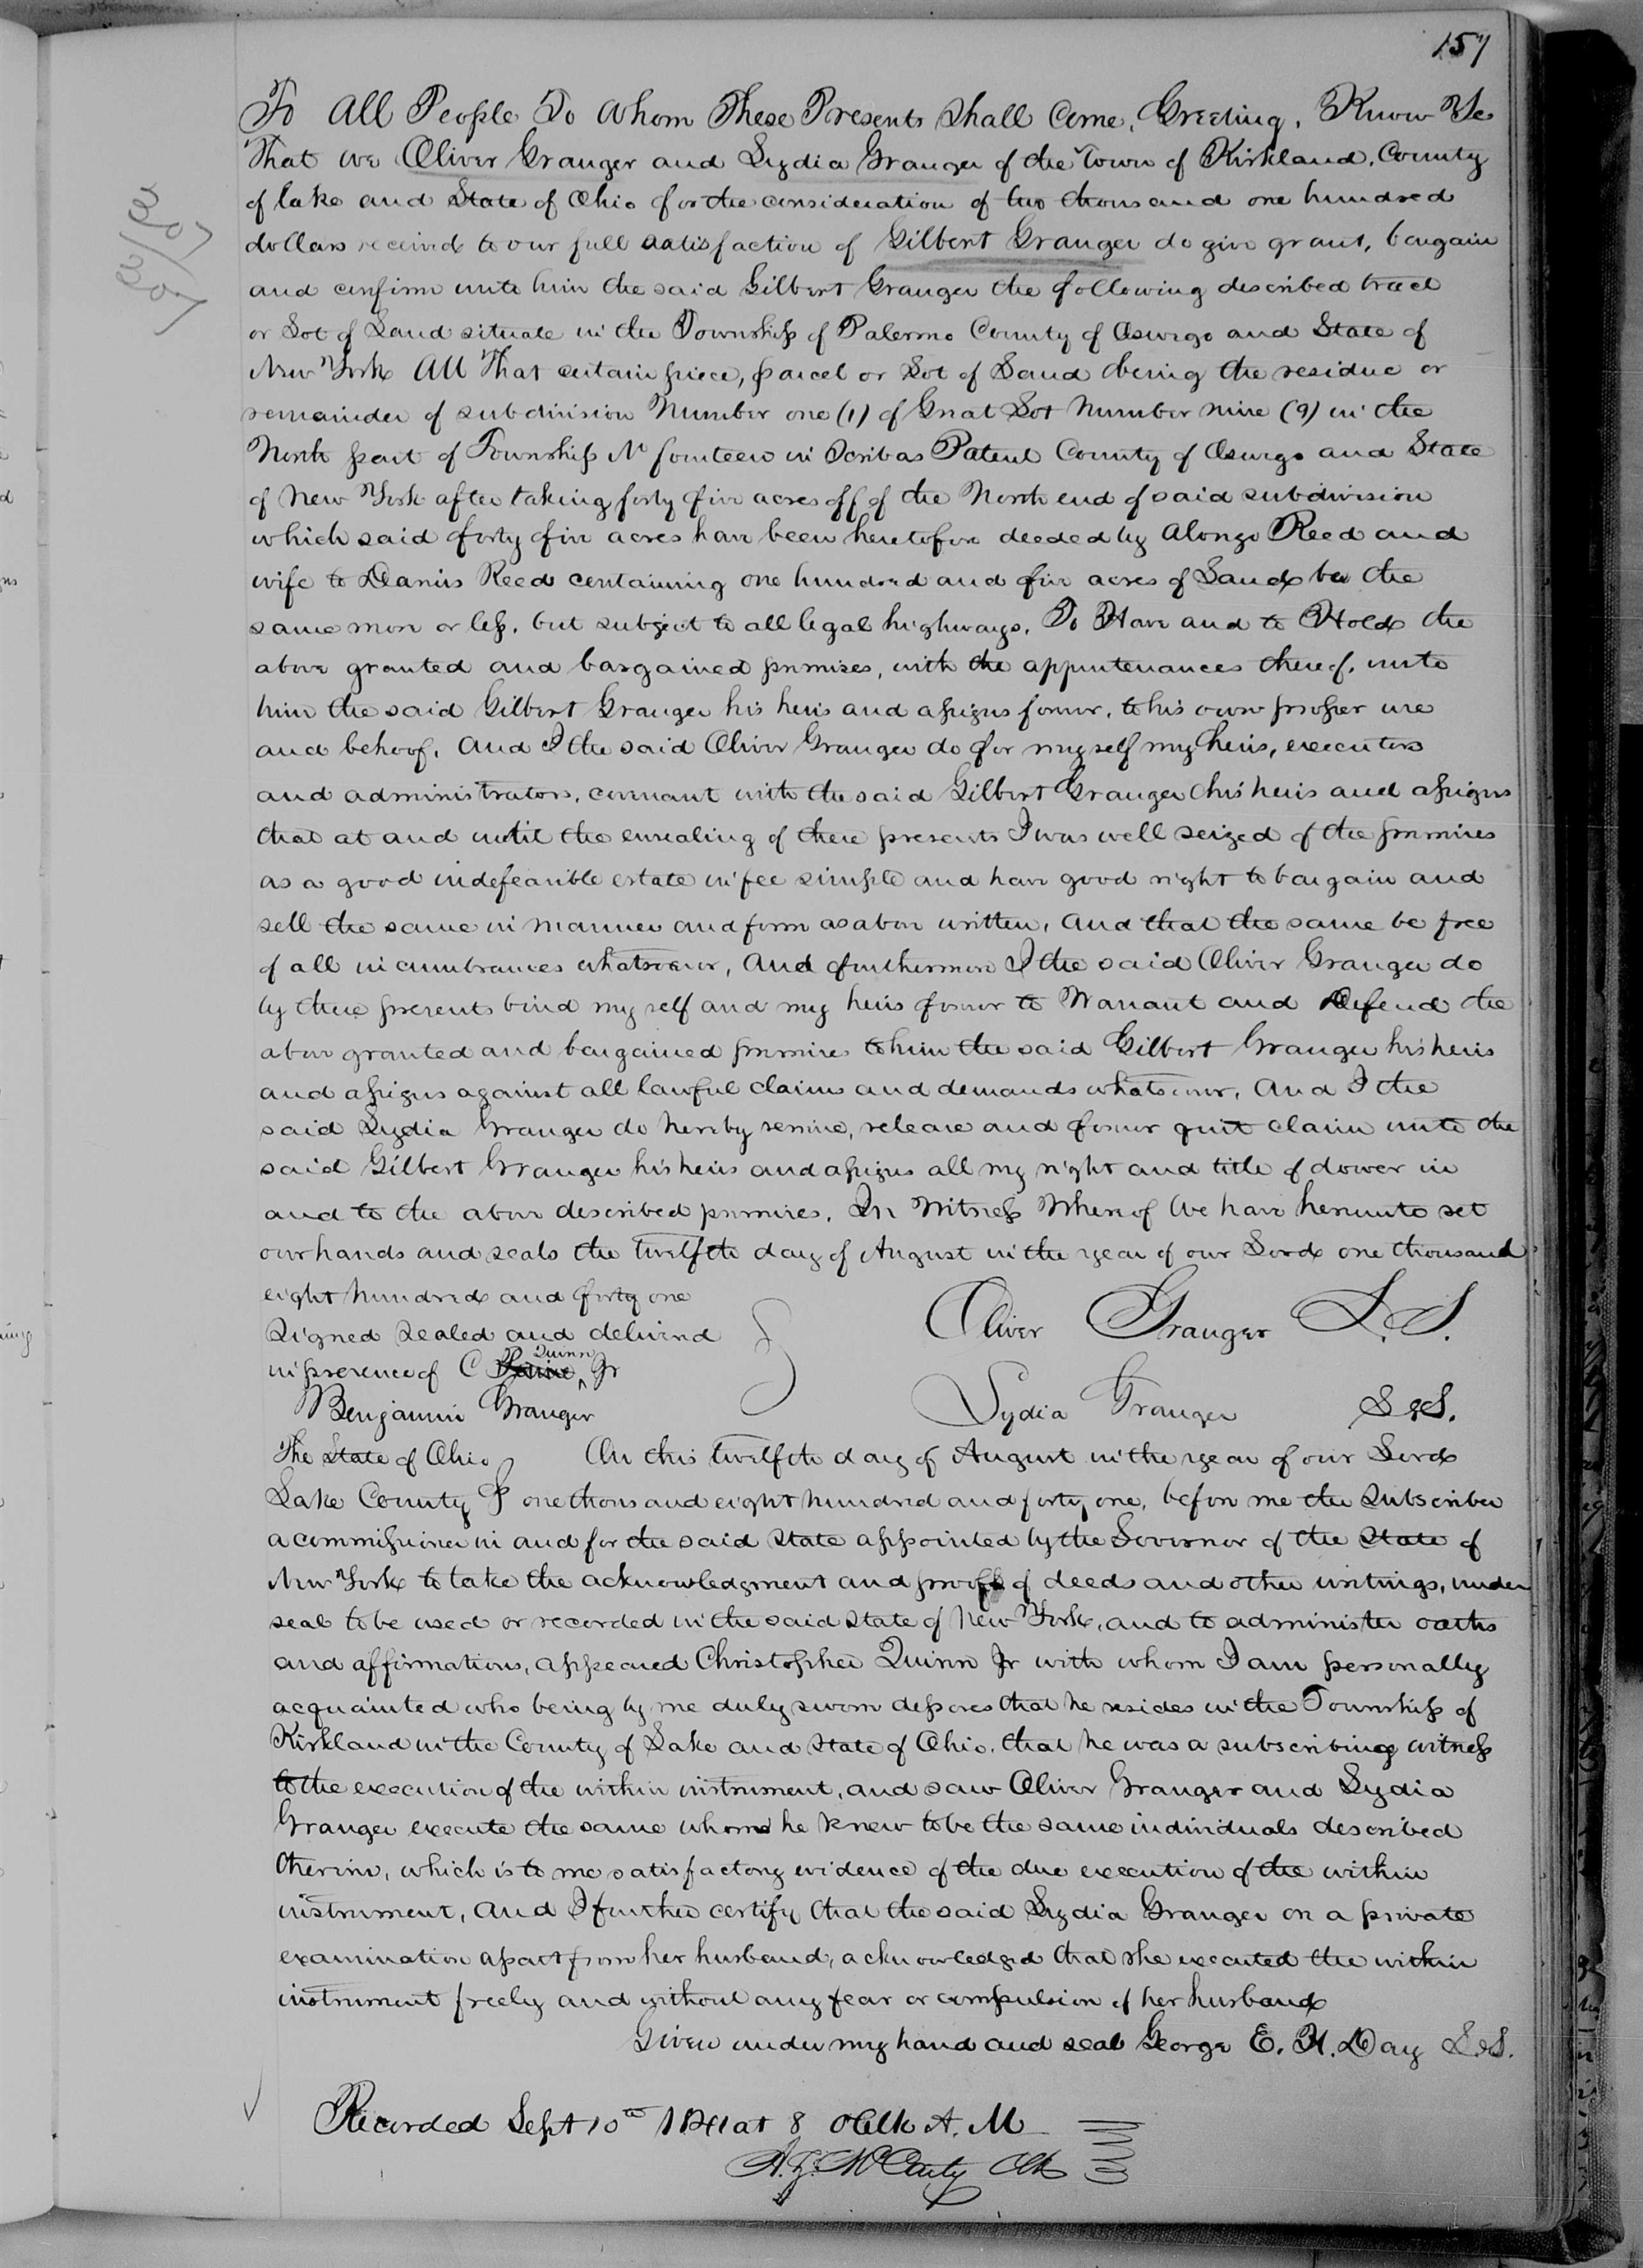 157
To All People To Whom These Presents Shall Come, Greeting, Know Ye
That we Oliver Granger and Lydia Granger of the Town of Kirkland, County
of lake and State of Ohio for the consideration of two thousand one hundred
dollars received to our full satisfaction of Gilbert Granger do give grant, bargain
and confirm unto him the said Gilbert Granger the following described tract
or Lot of Land situate in the Township of Palermo County of Oswego and State of
New York All That certain piece, parcel or Lot of Land being the residue or
remainder of subdivision Number one (1) of Great Lot Number nine (9) in the
North part of Township No fourteen in Scribas Patent County of Oswego and State
of New York after taking forty five acres off of the North end of said subdivision
which said forty five acres have been heretofore deeded by Alonzo Reed and
wife to Darius Reed containing one hundred and five acres of Land be the
same more or less, but subject to all legal highways, To Have and to Hold the
above granted and bargained premises, with the appurtenances thereof, unto
him the said Gilbert Granger his heirs and assigns forever, to his own proper use
and behoof, And I the said Oliver Granger do for myself my heirs, executors
and administrators, covenant with the said Gilbert Granger his heirs and assigns
that at and until the ensealing of these presents I was well seized of the premises
as a good indefeasible estate in fee simple and have good right to bargain and
sell the same in manner and form as above written, And that the same be free
of all incumbrances whatsoever, And furthermore I the said Oliver Granger do
by these presents bind my self and my heirs forever to Warrant and Defend the
above granted and bargained premises to him the said Gilbert Granger his heirs
and assigns against all lawful claims and demands whatsoever, And I the
said Lydia Granger do hereby remise, release and forever quit claim unto the
said Gilbert Granger his heirs and assigns all my right and title of dower in
and to the above described premises, In Witness Whereof We have hereunto set
our hands and seals the twelfth day of August in the year of our Lord one thousand
eight hundred and forty one
Signed Sealed and delivered Oliver Granger L.S.
in presence of C Quinn Jr
Benjamin Granger Lydia Granger L.S.
The State of Ohio On this twelfth day of August in the year of our Lord
Lake County Ss one thousand eight hundred and forty one, before me the Subscriber
a commissioner in and for the said State appointed by the Governor of the State of
New York to take the acknowledgment and proof of deeds and other writings, under
seal to be used or recorded in the said State of New York, and to administer oaths
and affirmations, appeared Christopher Quinn Jr with whom I am personally
acquainted who being by me duly sworn deposes that he resides in the Township of
Kirkland in the County of Lake and State of Ohio, that he was a subscribing witness
to the execution of the within instrument, and saw Oliver Granger and Lydia
Granger execute the same whom he knew to be the same individuals described
therein, which is to me satisfactory evidence of the due execution of the within
instrument, And I further certify that the said Lydia Granger on a private
examination apart from her husband, acknowledged that she executed the within
instrument freely and without any fear or compulsion of her husband
Given under my hand and seal George E. H. Day L.S.
Recorded Sept 10th 1841 at 8 oClk A. M
McCarty Clk